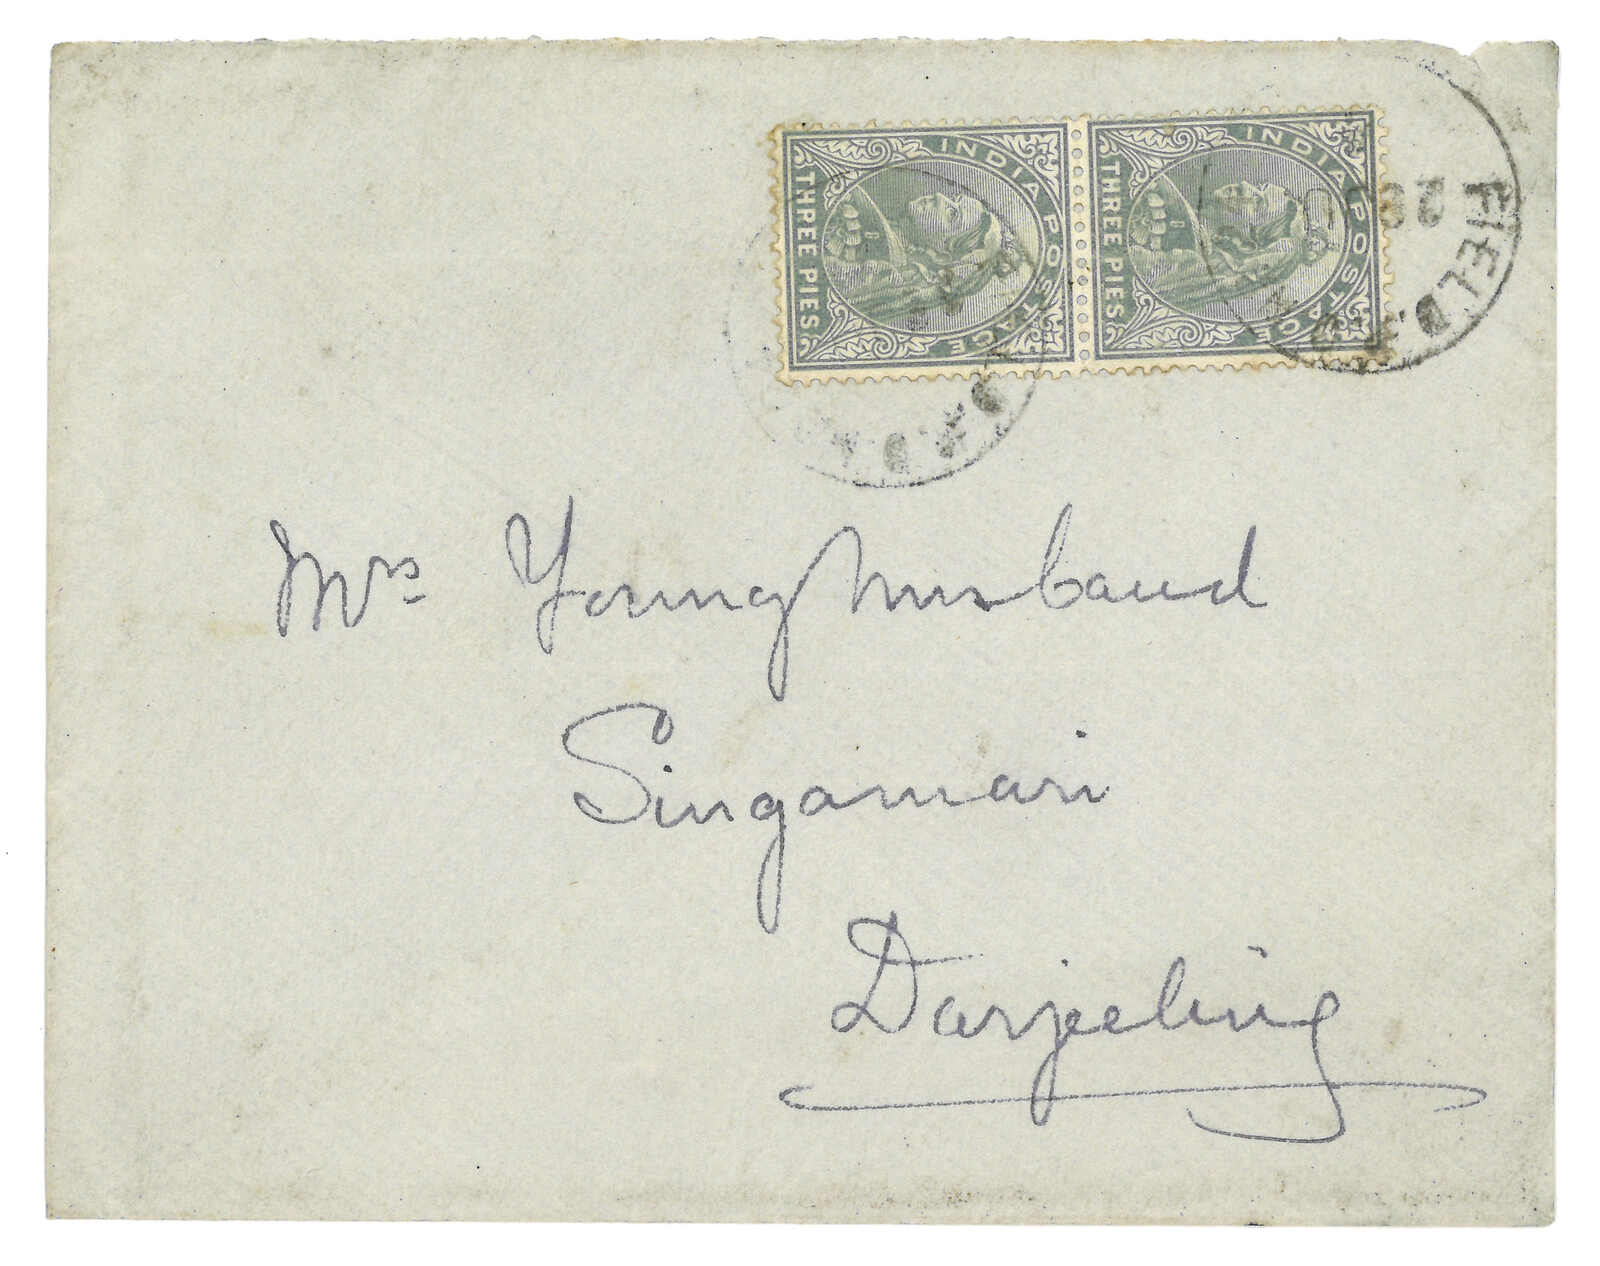 INDIA POSTAGE
THREE PIES
INDIA POSTAGE
THREE PIES
FIELD P.O.
Mrs Younghusband
Singamari
Darjeeling